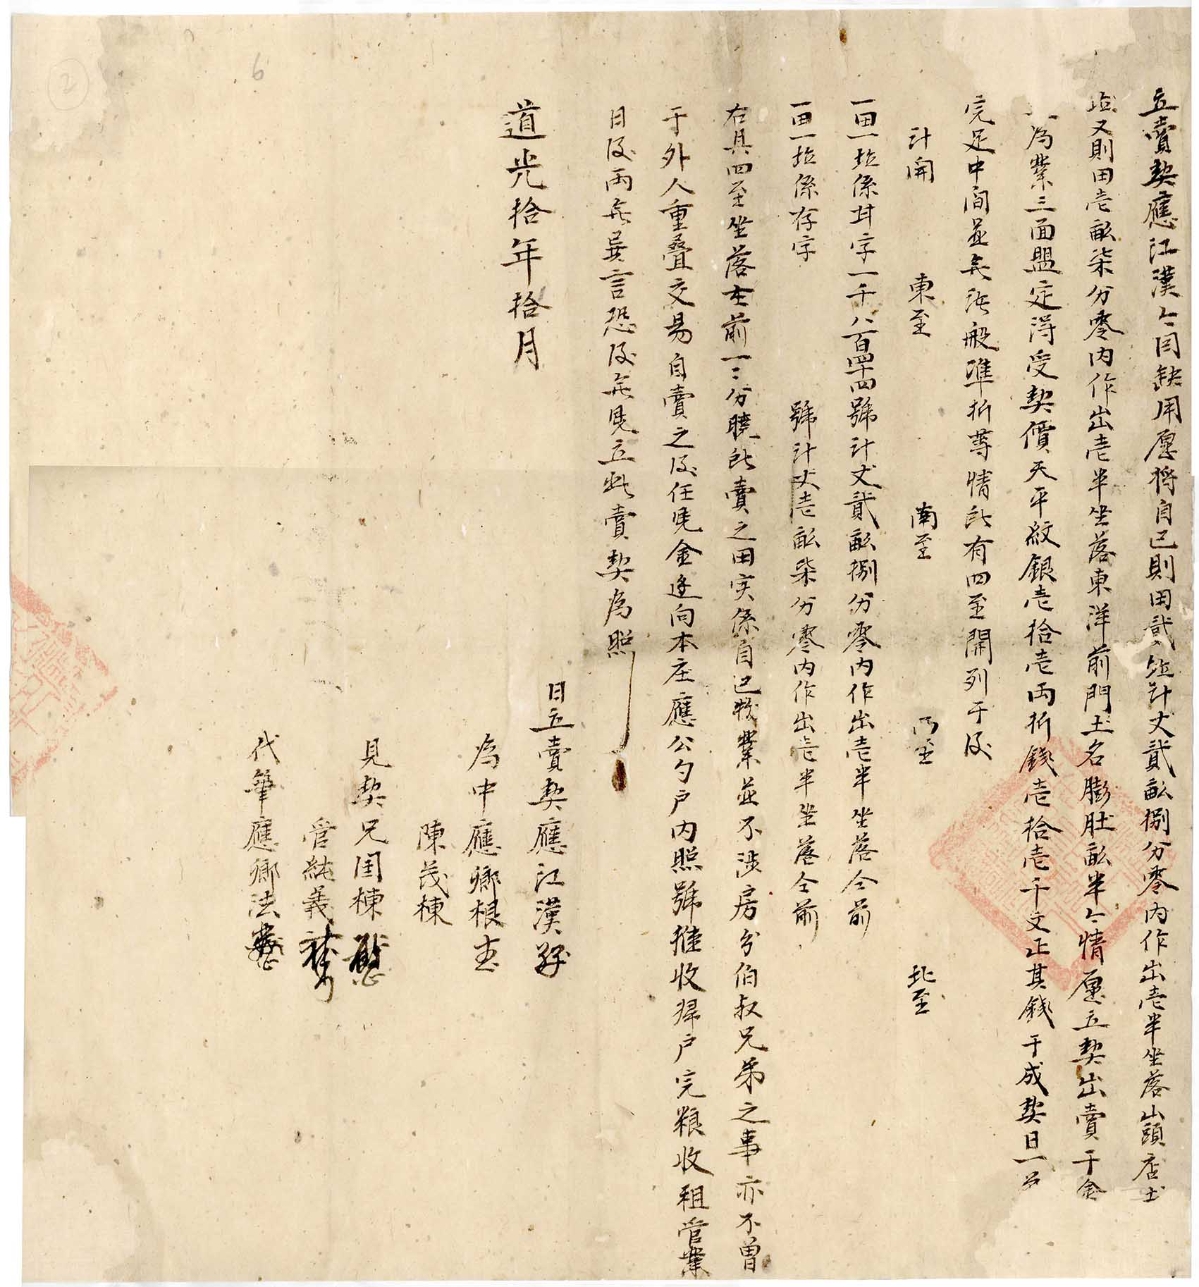 立賣契應江漢今因缺用愿將自己則田貳坵計丈貳畝捌分零內作出壹半坐落山頭店土
又則田壹畝柒分零內作出壹半坐落東洋前門土名膨肚畝半今情愿立契出賣于金
為業三面盟定得受契價天平紋銀壹拾壹兩折錢壹拾壹千文正其錢于成契日一并
完足中間並無諸般準折等情所有四至開列于后
計開 東至 南至 西至 北至
一田一坵係甘字一千八百四十四號計丈貳畝捌分零內作出壹半坐落仝前
一田一坵係存字 號計丈壹畝柒分零內作出壹半坐落仝前
右具四至坐落在前一二分曉此賣之田实係自己物業並不涉房分伯叔兄弟之事亦不曾
于外人重叠交易自賣之后任凭金逕向本庄應公勺户內照號推收歸户完粮收租管業
日后兩無異言恐后無凭立此賣契為照
道光拾年拾月
日立賣契應江漢
為中應鄉根
陳茂棟
見契兄国棟
管純義
代筆應鄉法
2
6